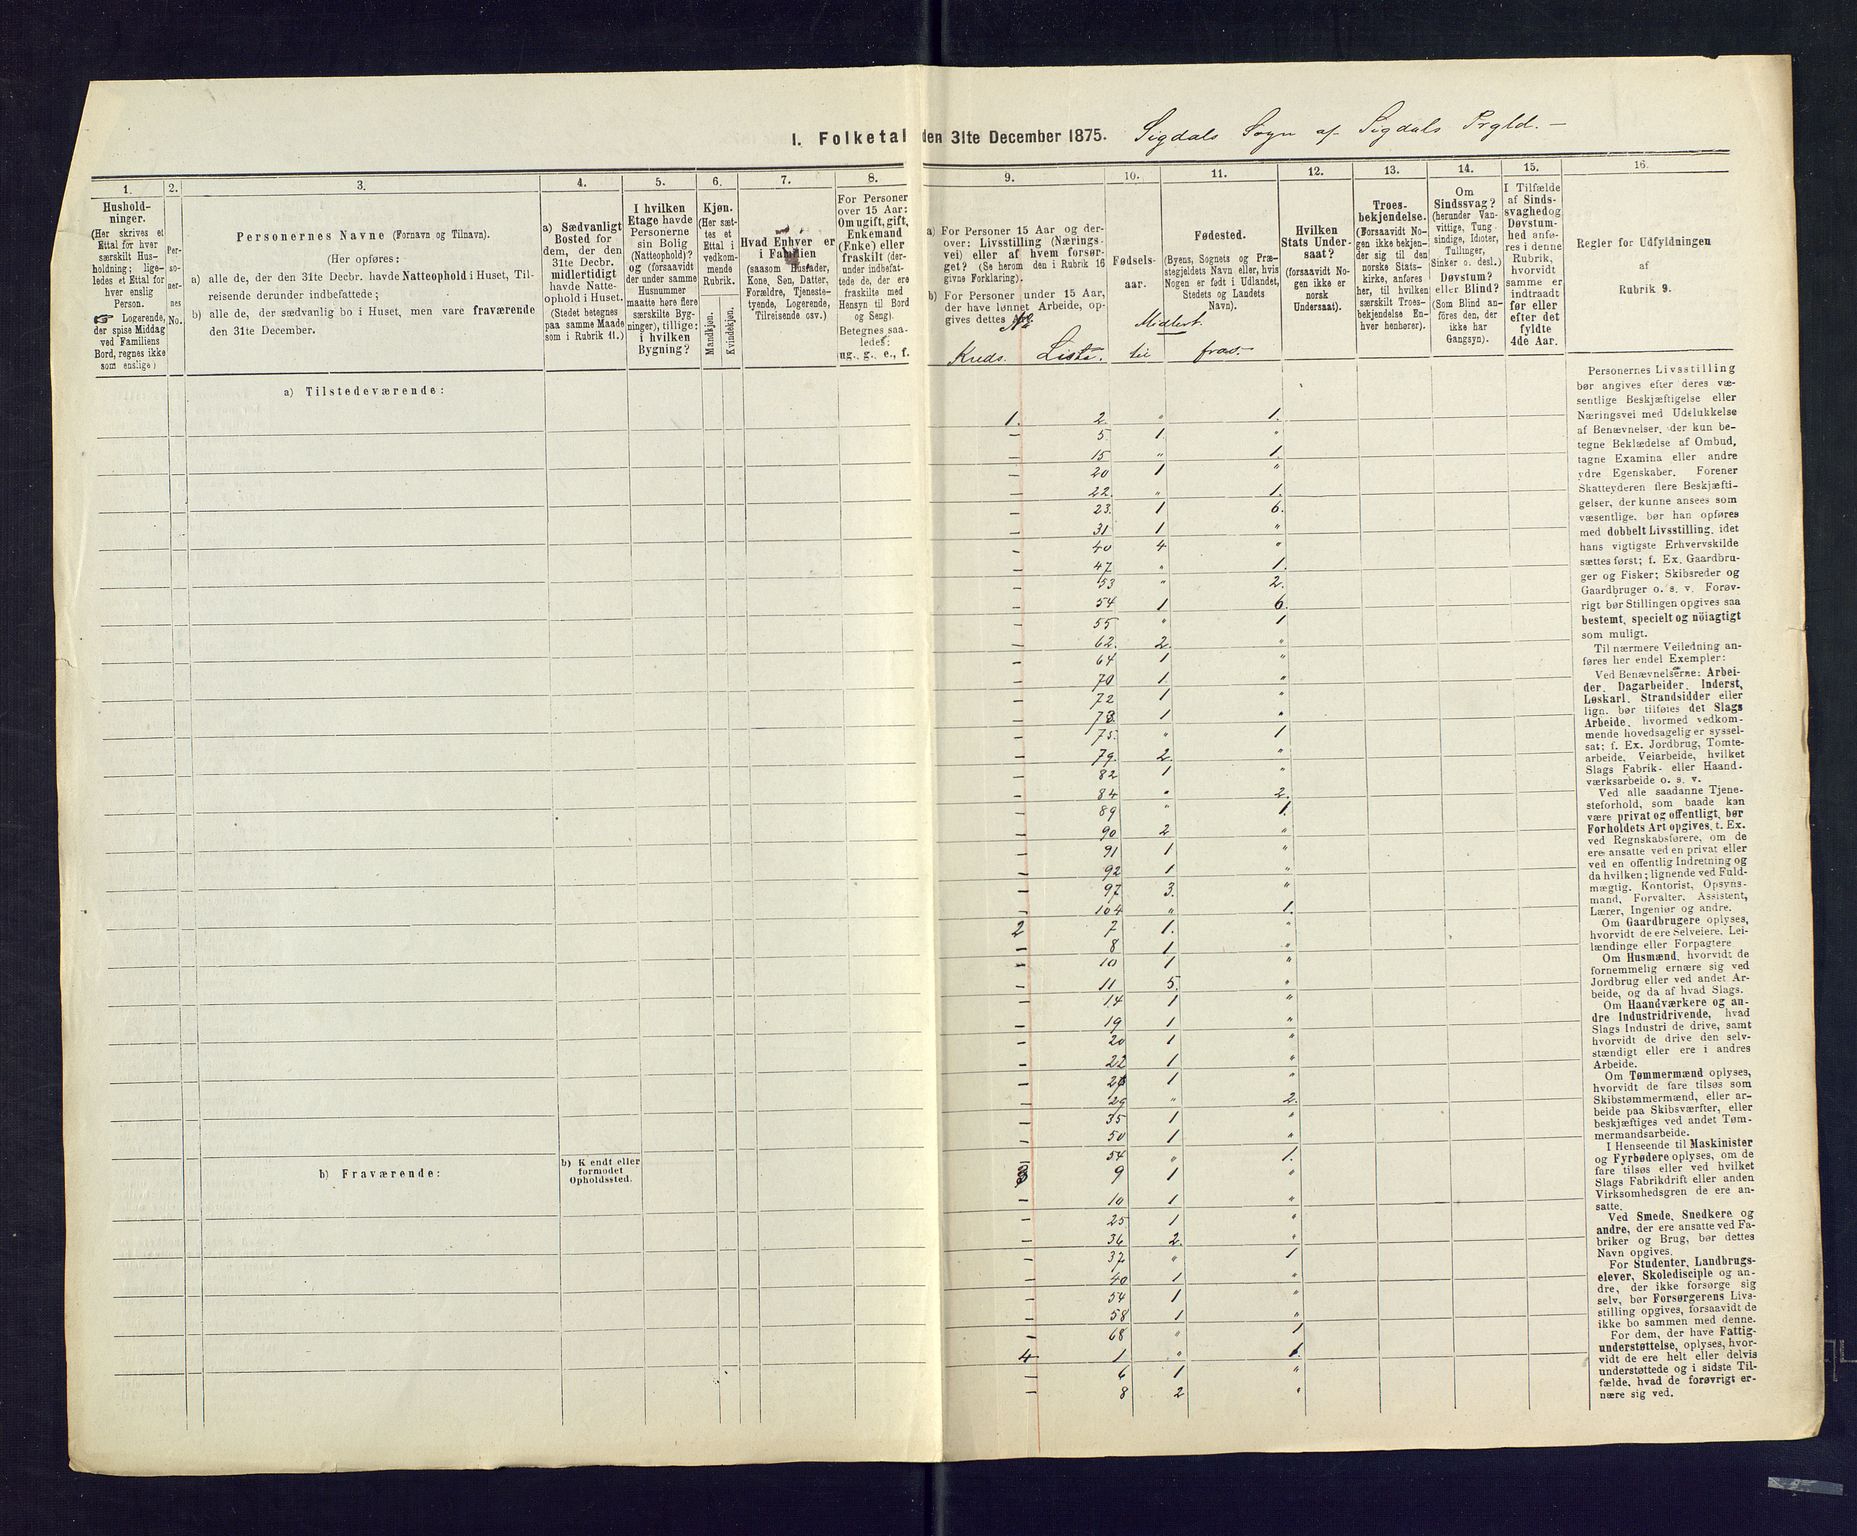 I. Folketal den 31te December 1875. Sigdals Sogn af Sigdals Prgld. —
1.
Hushold-
ninger.
(Her skrives et
Ettal for hver
særskilt Hus-
holdning; lige-
ledes et Ettal for
hver enslig
Person.
☞ Logerende,
der spise Middag
ved Familiens
Bord, regnes ikke
som enslige)
2.
Per-
so-
ner-
nes
No.
3.
Personernes Navne (Fornavn og Tilnavn).
(Her opføres:
a) alle de, der den 31te Decbr. havde Natteophold i Huset, Til-
reisende derunder indbefattede;
b) alle de, der sædvanlig bo i Huset, men vare fraværende
den 31te December.
4.
a) Sædvanligt
Bosted for
dem, der den
31te Decbr.
midlertidigt
havde Natte-
ophold i Huset.
(Stedet betegnes
paa samme Maade
som i Rubrik 11.)
5.
I hvilken
Etage havde
Personerne
sin Bolig
(Natteophold)?
og (forsaavidt
der under samme
Husnummer
maatte høre flere
særskilte Byg-
ninger), tillige:
i hvilken
Bygning?
6.
Kjøn.
(Her sæt-
tes et
Ettal i
vedkom-
mende
Rubrik.
Mandkjøn.
Kvindekjøn.
7.
Hvad Enhver er
i Familien
(saasom Husfader,
Kone, Søn, Datter,
Forældre, Tjeneste-
tyende, Logerende,
Tilreisende osv.)
8.
For Personer
over 15 Aar:
Om ugift, gift,
Enkemand
(Enke) eller
fraskilt (der-
under indbefat-
tede de, der ere
fraskilte med
Hensyn til Bord
og Seng).
Betegnes saa-
ledes:
ug., g., e., f.
9.
a) For Personer 15 Aar og der-
over: Livsstilling (Nærings-
vei) eller af hvem forsør-
get? (Se herom den i Rubrik 16
givne Forklaring).
b) For Personer under 15 Aar,
der have lønnet Arbeide, op-
gives dettes
No
Kreds. Liste.
10.
Fødsels-
aar.
11.
Fødested.
(Byens, Sognets og Præ-
stegjeldets Navn eller, hvis
Nogen er født i Udlandet,
Stedets og Landets
Navn).
Midlert.
til frav.
12.
Hvilken
Stats Under-
saat?
(forsaavidt No-
gen ikke er
norsk
Undersaat).
13.
Troes-
bekjendelse.
(Forsaavidt No-
gen ikke bekjen-
der sig til den
norske Stats-
kirke, anføres
her, til hvilken
særskilt Troes-
bekjendelse En-
hver henhører).
14.
Om
Sindssvag?
(herunder Van-
vittige, Tung
sindige, Idioter,
Tullinger,
Sinker o. desl.)
Døvstum?
eller Blind?
(Som Blind an-
føres den, der
ikke har
Gangsyn).
15.
I Tilfælde
af Sinds-
svaghed og
Døvstum-
hed anfø-
res i denne
Rubrik,
hvorvidt
samme er
indtraadt
før eller
efter det
fyldte
4de Aar.
16.
Regler for Udfyldningen
af
Rubrik 9.
a) Tilstedeværende:
1. 2. " 1.
— 5. 1. "
— 15 " 1
— 20 1 "
— 22. " 1.
— 23. 1 6.
— 31 1 "
— 40 4 "
— 47 " 1.
— 53 " 2.
— 54 1 6.
— 55 " 1
— 62. 2. "
— 64 1 "
— 70 1. "
— 72 1 "
— 73. 1 "
— 75. " 1
— 79. 2. "
— 82 1 "
— 84 " 2.
— 89 " 1.
— 90 2 "
— 91 1 "
— 92 1 "
— 97 3. "
— 104 " 1.
2 7 1. "
— 8 1 "
— 10 1 "
— 11 5. "
— 14 1 "
— 19 1 "
— 20 1 "
— 22 1 "
— 1 "
— 29 " 2.
— 35 1 "
— 50 1 "
— 54 " 1.
3 9 1 "
— 10 1 "
— 25 1 "
— 36 2. "
— 37 " 1
— 40 1 "
— 54 1 "
— 58 1 "
— 68 " 1
4 1 " 1.
— 6 1 "
— 8 2 "
b) Fraværende:
b) Kjendt eller
formodet
Opholdssted.
Personernes Livsstilling
bør angives efter deres væ-
sentlige Beskjæftigelse eller
Næringsvei med Udelukkelse
af Benævnelser, der kun be-
tegne Beklædelse af Ombud,
tagne Examina eller andre
ydre Egenskaber. Forener
Skatteyderen flere Beskjæfti-
gelser, der kunne ansees som
væsentlige, bør han opføres
med dobbelt Livsstilling, idet
hans vigtigste Erhvervskilde
sættes først; f. Ex. Gaardbru-
ger og Fisker; Skibsreder og
Gaardbruger o. s. v. Forøv-
rigt bør Stillingen opgives saa
bestemt, specielt og nöiagtigt
som muligt.
Til nærmere Veiledning an-
føres her endel Exempler:
Ved Benævnelserne: Arbei-
der, Dagarbeider, Inderst,
Løskarl, Strandsidder eller
lign. bør tilføies det Slags
Arbeide, hvormed vedkom-
mende hovedsagelig er syssel-
sat; f. Ex. Jordbrug, Tomte-
arbeide, Veiarbeide, hvilket
Slags Fabrik- eller Haand-
værksarbeide o. s. v.
Ved alle saadanne Tjene-
steforhold, som baade kan
være privat og offentligt, bør
Forholdets Art opgives, t. Ex.
ved Regnskabsførere, om de
ere ansatte ved en privat eller
ved en offentlig Indretning og
da hvilken; lignende ved Fuld-
mægtig, Kontorist, Opsyns-
mand, Forvalter, Assistent,
Lærer, Ingeniør og andre.
Om Gaardbrugere oplyses,
hvorvidt de ere Selveiere, Lei-
lændinge eller Forpagtere
Om Husmænd, hvorvidt de
fornemmelig ernære sig ved
Jordbrug eller ved andet Ar-
beide, og da af hvad Slags.
Om Haandværkere og an-
dre Industridrivende, hvad
Slags Industri de drive, samt
hvorvidt de drive den selv-
stændigt eller ere i andres
Arbeide.
Om Tømmermænd oplyses,
hvorvidt de fare tilsøs som
Skibstømmermænd, eller ar-
beide paa Skibsværfter, eller
beskjæftiges ved andet Tøm-
mermandsarbeide.
I Henseende til Maskinister
og Fyrbødere oplyses, om de
fare tilsøs eller ved hvilket
Slags Fabrikdrift eller anden
Virksomhedsgren de ere an-
satte.
Ved Smede, Snedkere og
andre, der ere ansatte ved Fa-
briker og Brug, bør dettes
Navn opgives.
For Studenter, Landbrugs-
elever, Skoledisciple og an-
dre, der ikke forsørge sig
selv, bør Forsørgerens Livs-
stilling opgives, forsaavidt de
ikke bo sammen med denne.
For dem, der have Fattig-
understøttelse, oplyses, hvor-
vidt de ere helt eller delvis
understøttede og i sidste Til-
fælde, hvad de forøvrigt er-
nære sig ved.